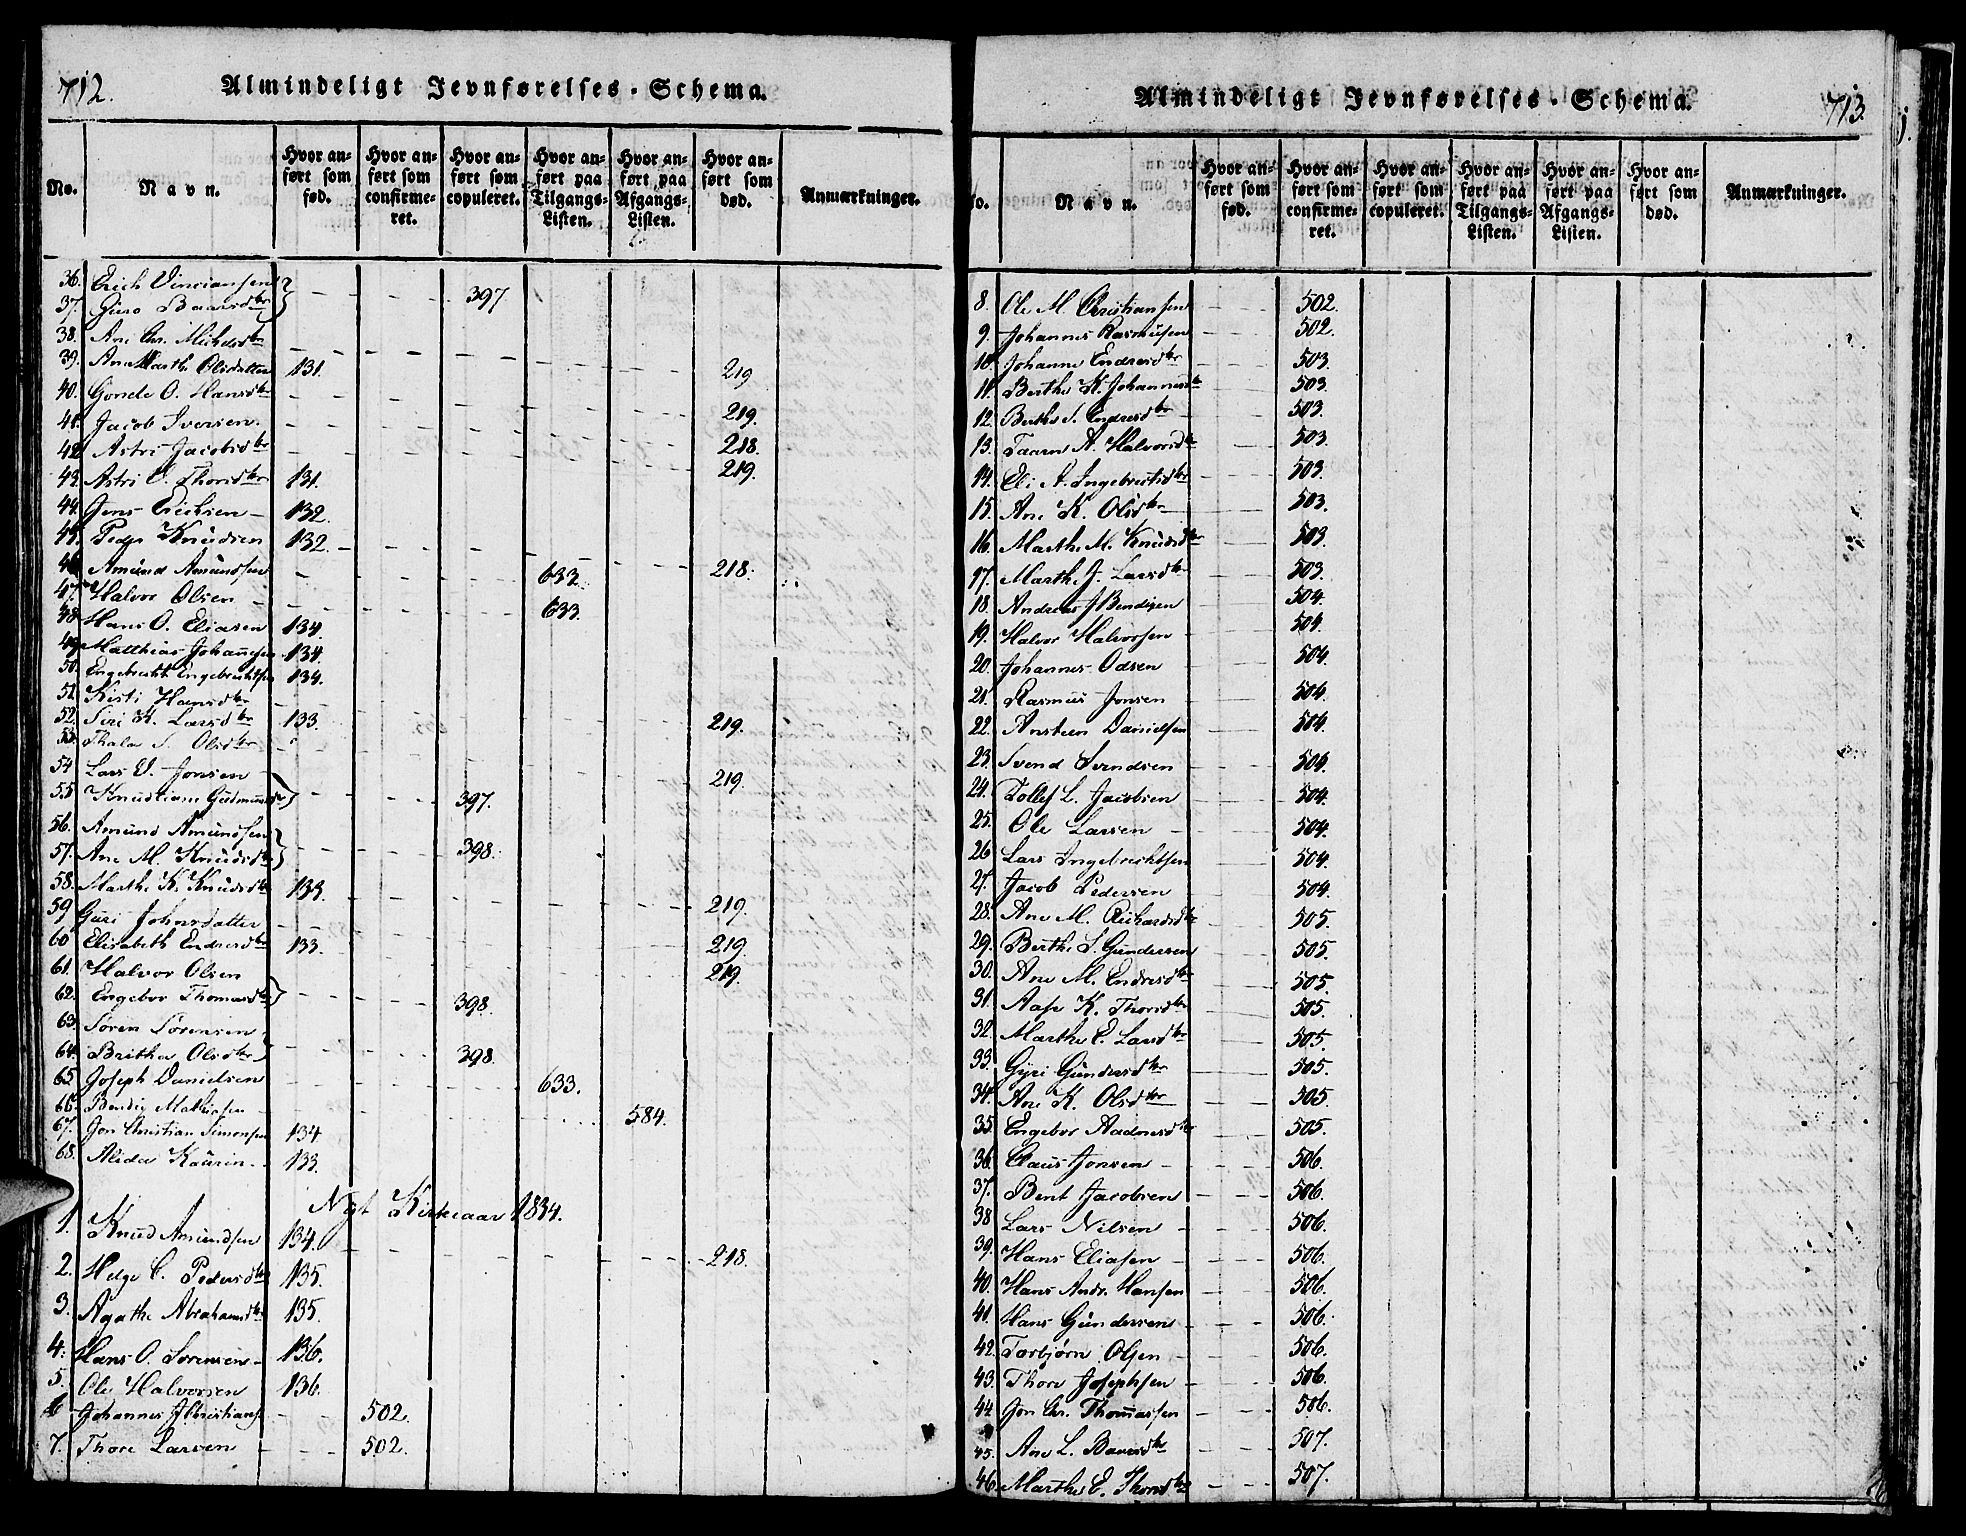 712.
Almindeligt Jevnførelses-Schema.
No.
Navn.
Hvor anført som fød.
Hvor anført som confirmeret.
Hvor anført som copuleret.
Hvor anført paa Tilgangs-Listen.
Hvor anført paa Afgangs-Listen.
Hvor anført som død.
Anmærkninger.
36. Erich Vinciansen
37. Guro Baarsdtr 397
38. Ane Chr. Michelsdtr
39. Ane Marthe Olsdatter 131. 219
40. Gonde O. Hansdtr
41. Jacob Iversen. 219.
42. Astri Jacobsdtr 218.
43. Astri O. Thorsdtr 131. 219.
44. Jens Erichsen 132.
45. Peder Knudsen 132.
46. Amund Amundsen 633. 218.
47. Halvor Olsen 633.
48. Hans O. Eliasen 134.
49. Matthias Johannesen 134.
50. Engebrecht Engebrechtsen 134.
51. Kisti Hansdtr
52. Siri K. Larsdtr 133. 219.
53. Thala S. Olsdtr
54 Lars V. Jonsen 219.
55 Knudtiane Gudmundsdtr 397.
56. Amund Amundsen
57. Ane M. Knudsdtr 398.
58. Marthe K. Knudsdtr 133.
59 Guri Johnsdatter 219.
60 Elisabeth Endresdtr 133. 219
61. Halvor Olsen 219.
62. Engebor Thomasdtr 398.
63. Søren Sørensen
64. Britha Olsdtr 398.
65 Joseph Danielsen 633.
66. Bendix Mathiesen 584.
67. Jon Christian Simonsen 134
68. Alida Kaurin 133.
Nyt Kirkeaar 1834.
1. Knud Amundsen 134.
2. Helge C. Pedersdtr 135. 218.
3. Agathe Abrahamsdtr 135.
4. Hans O. Sørensen 136.
5. Ole Halvorsen 136.
6 Johannes J Christians. 502.
7. Thore Larsen 502.
Almindeligt Jevnførelses-Schema.
713.
No.
Navn.
Hvor anført som fød.
Hvor anført som confirmeret.
Hvor anført som copuleret.
Hvor anført paa Tilgangs-Listen.
Hvor anført paa Afgangs-Listen.
Hvor anført som død.
Anmærkninger.
8. Ole M. Christiansen 502.
9. Johannes Rasmusen 502.
10. Johanne Endresdtr 503.
11. Berthe K. Johannesdtr 503.
12. Berthe S. Endresdtr 503.
13. Taarn A. Halvorsdtr 503.
14. Eli A. Ingebrectsdtr 503.
15. Ane K. Olsdtr 503.
16. Marthe M. Knudsdtr 503.
17. Marthe J. Larsdtr 503.
18. Andreas J Bendixen 504.
19. Halvor Halvorsen 504.
20. Johannes Odsen 504.
21. Rasmus Jonsen 504.
22. Ansteen Danielsen 504.
23. Svend Svendsen 504.
24. Tollef L. Jacobsen 504.
25. Ole Larsen 504.
26 Lars Ingebrechtsen 504.
27. Jacob Pedersen 504.
28. Ane M. Richardsdtr 505.
29. Berthe S. Gundersen 505.
30. Ane M. Endresdtr 505.
31. Aase K. Thorsdtr 505.
32. Marthe E. Larsdtr 505.
33. Gyri Gundersdtr 505.
34. Ane K. Olsdtr 505.
35. Engebor Aadnesdtr 505.
36. Claus Jonsen 506.
37. Bent Jacobsen 506.
38 Lars Nilsen 506.
39. Hans Eliasen 506.
40. Hans Andr. Hansen 506.
41. Hans Gundersen 506.
42. Torbjørn Olsen 506.
43. Thore Josephsen 506.
44 Jon Chr. Thomassen 506.
45. Ane L. Baarsdtr 507.
46. Marthe E. Thorsdtr 507.